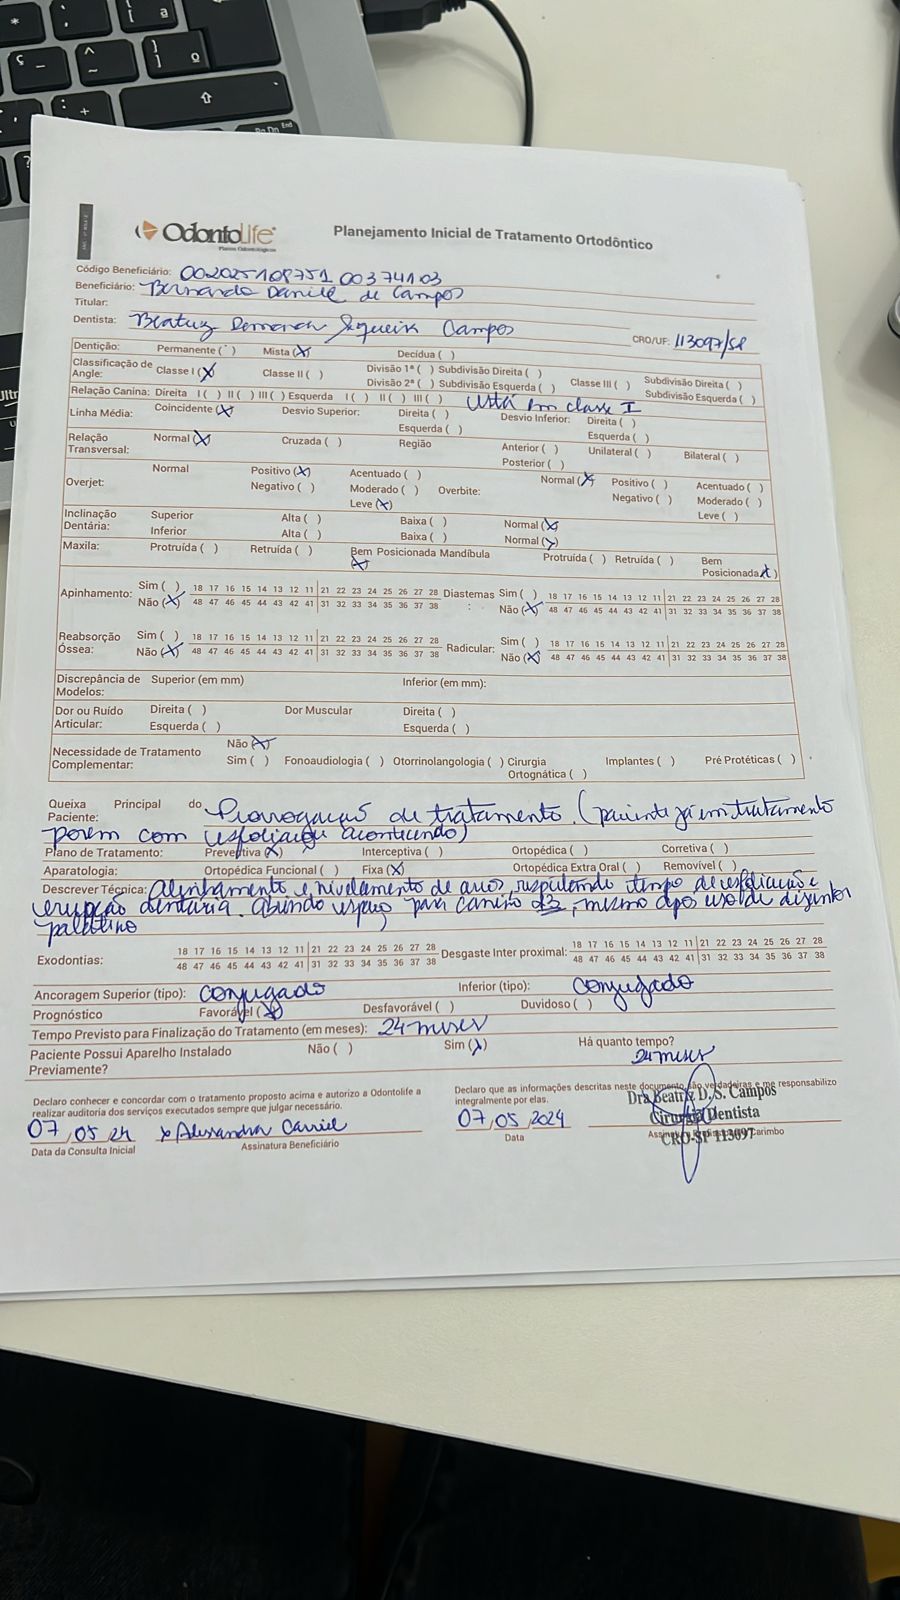 OdontoLife
Planos Odontológicos
Planejamento Inicial de Tratamento Ortodôntico
Código Beneficiário: 002025108751 00374103
Beneficiário: Bernardo Daniel de Campos
Titular:
Dentista: Beatriz Siqueira Campos CRO/UF: 113097/SP
Dentição: Permanente ( ) Mista (X) Decídua ( )
Classificação de Angle: Classe I (X) Classe II ( ) Divisão 1ª ( ) Subdivisão Direita ( ) Classe III ( ) Subdivisão Direita ( )
Divisão 2ª ( ) Subdivisão Esquerda ( ) Subdivisão Esquerda ( )
Relação Canina: Direita I ( ) II ( ) III ( ) Esquerda I ( ) II ( ) III ( ) está em classe I
Linha Média: Coincidente (X) Desvio Superior: Direita ( ) Desvio Inferior: Direita ( )
Esquerda ( ) Esquerda ( )
Relação Transversal: Normal (X) Cruzada ( ) Região Anterior ( ) Unilateral ( ) Bilateral ( )
Posterior ( )
Overjet: Normal Positivo (X) Acentuado ( ) Overbite: Normal (X) Positivo ( ) Acentuado ( )
Negativo ( ) Moderado ( ) Negativo ( ) Moderado ( )
Leve (X) Leve ( )
Inclinação Dentária: Superior Alta ( ) Baixa ( ) Normal (X)
Inferior Alta ( ) Baixa ( ) Normal (X)
Maxila: Protruída ( ) Retruída ( ) Bem Posicionada (X) Mandíbula Protruída ( ) Retruída ( ) Bem Posicionada (X)
Apinhamento: Sim ( ) 18 17 16 15 14 13 12 11 21 22 23 24 25 26 27 28 Diastemas: Sim ( ) 18 17 16 15 14 13 12 11 21 22 23 24 25 26 27 28
Não (X) 48 47 46 45 44 43 42 41 31 32 33 34 35 36 37 38 Não (X) 48 47 46 45 44 43 42 41 31 32 33 34 35 36 37 38
Reabsorção Óssea: Sim ( ) 18 17 16 15 14 13 12 11 21 22 23 24 25 26 27 28 Radicular: Sim ( ) 18 17 16 15 14 13 12 11 21 22 23 24 25 26 27 28
Não (X) 48 47 46 45 44 43 42 41 31 32 33 34 35 36 37 38 Não (X) 48 47 46 45 44 43 42 41 31 32 33 34 35 36 37 38
Discrepância de Modelos: Superior (em mm) Inferior (em mm):
Dor ou Ruído Articular: Direita ( ) Dor Muscular Direita ( )
Esquerda ( ) Esquerda ( )
Necessidade de Tratamento Complementar: Não (X)
Sim ( ) Fonoaudiologia ( ) Otorrinolangologia ( ) Cirurgia Ortognática ( ) Implantes ( ) Pré Protéticas ( )
Queixa Principal do Paciente: Prorrogação de tratamento. (paciente já em tratamento
porem com esfoliação acontecendo)
Plano de Tratamento: Preventiva (X) Interceptiva ( ) Ortopédica ( ) Corretiva ( )
Aparatologia: Ortopédica Funcional ( ) Fixa (X) Ortopédica Extra Oral ( ) Removível ( )
Descrever Técnica: Alinhamento e nivelamento de arcos, respeitando tempo de esfoliação e
erupção dentária. Abrindo espaço para canino 23, mesmo após uso de disjuntor
palatino
Exodontias: 18 17 16 15 14 13 12 11 21 22 23 24 25 26 27 28 Desgaste Inter proximal: 18 17 16 15 14 13 12 11 21 22 23 24 25 26 27 28
48 47 46 45 44 43 42 41 31 32 33 34 35 36 37 38 48 47 46 45 44 43 42 41 31 32 33 34 35 36 37 38
Ancoragem Superior (tipo): conjugado Inferior (tipo): conjugado
Prognóstico Favorável (X) Desfavorável ( ) Duvidoso ( )
Tempo Previsto para Finalização do Tratamento (em meses): 24 meses
Paciente Possui Aparelho Instalado Previamente? Não ( ) Sim (X) Há quanto tempo?
24 meses
Declaro conhecer e concordar com o tratamento proposto acima e autorizo a Odontolife a
realizar auditoria dos serviços executados sempre que julgar necessário.
Declaro que as informações descritas neste documento são verdadeiras e me responsabilizo
integralmente por elas.
07/05/24 x Alessandra Carriel 07/05/2024
Data da Consulta Inicial Assinatura Beneficiário Data
Dra Beatriz D. S. Campos
Cirurgiã Dentista
CRO-SP 113097